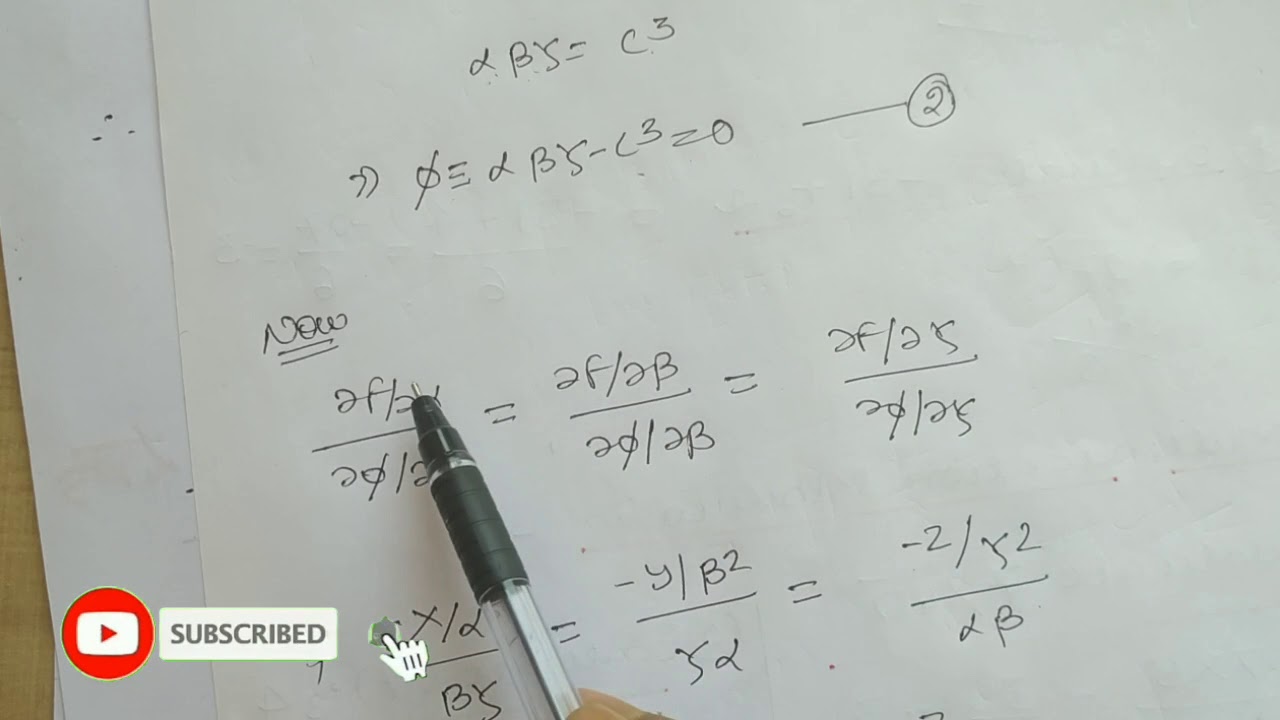 αβγ = c³
⇒ φ ≡ αβγ - c³ = 0 — ②
Now
∂f/∂α / ∂φ/∂ = ∂f/∂β / ∂φ/∂β = ∂f/∂γ / ∂φ/∂γ
-x/α / βγ = -y/β² / γα = -z/γ² / αβ
SUBSCRIBED